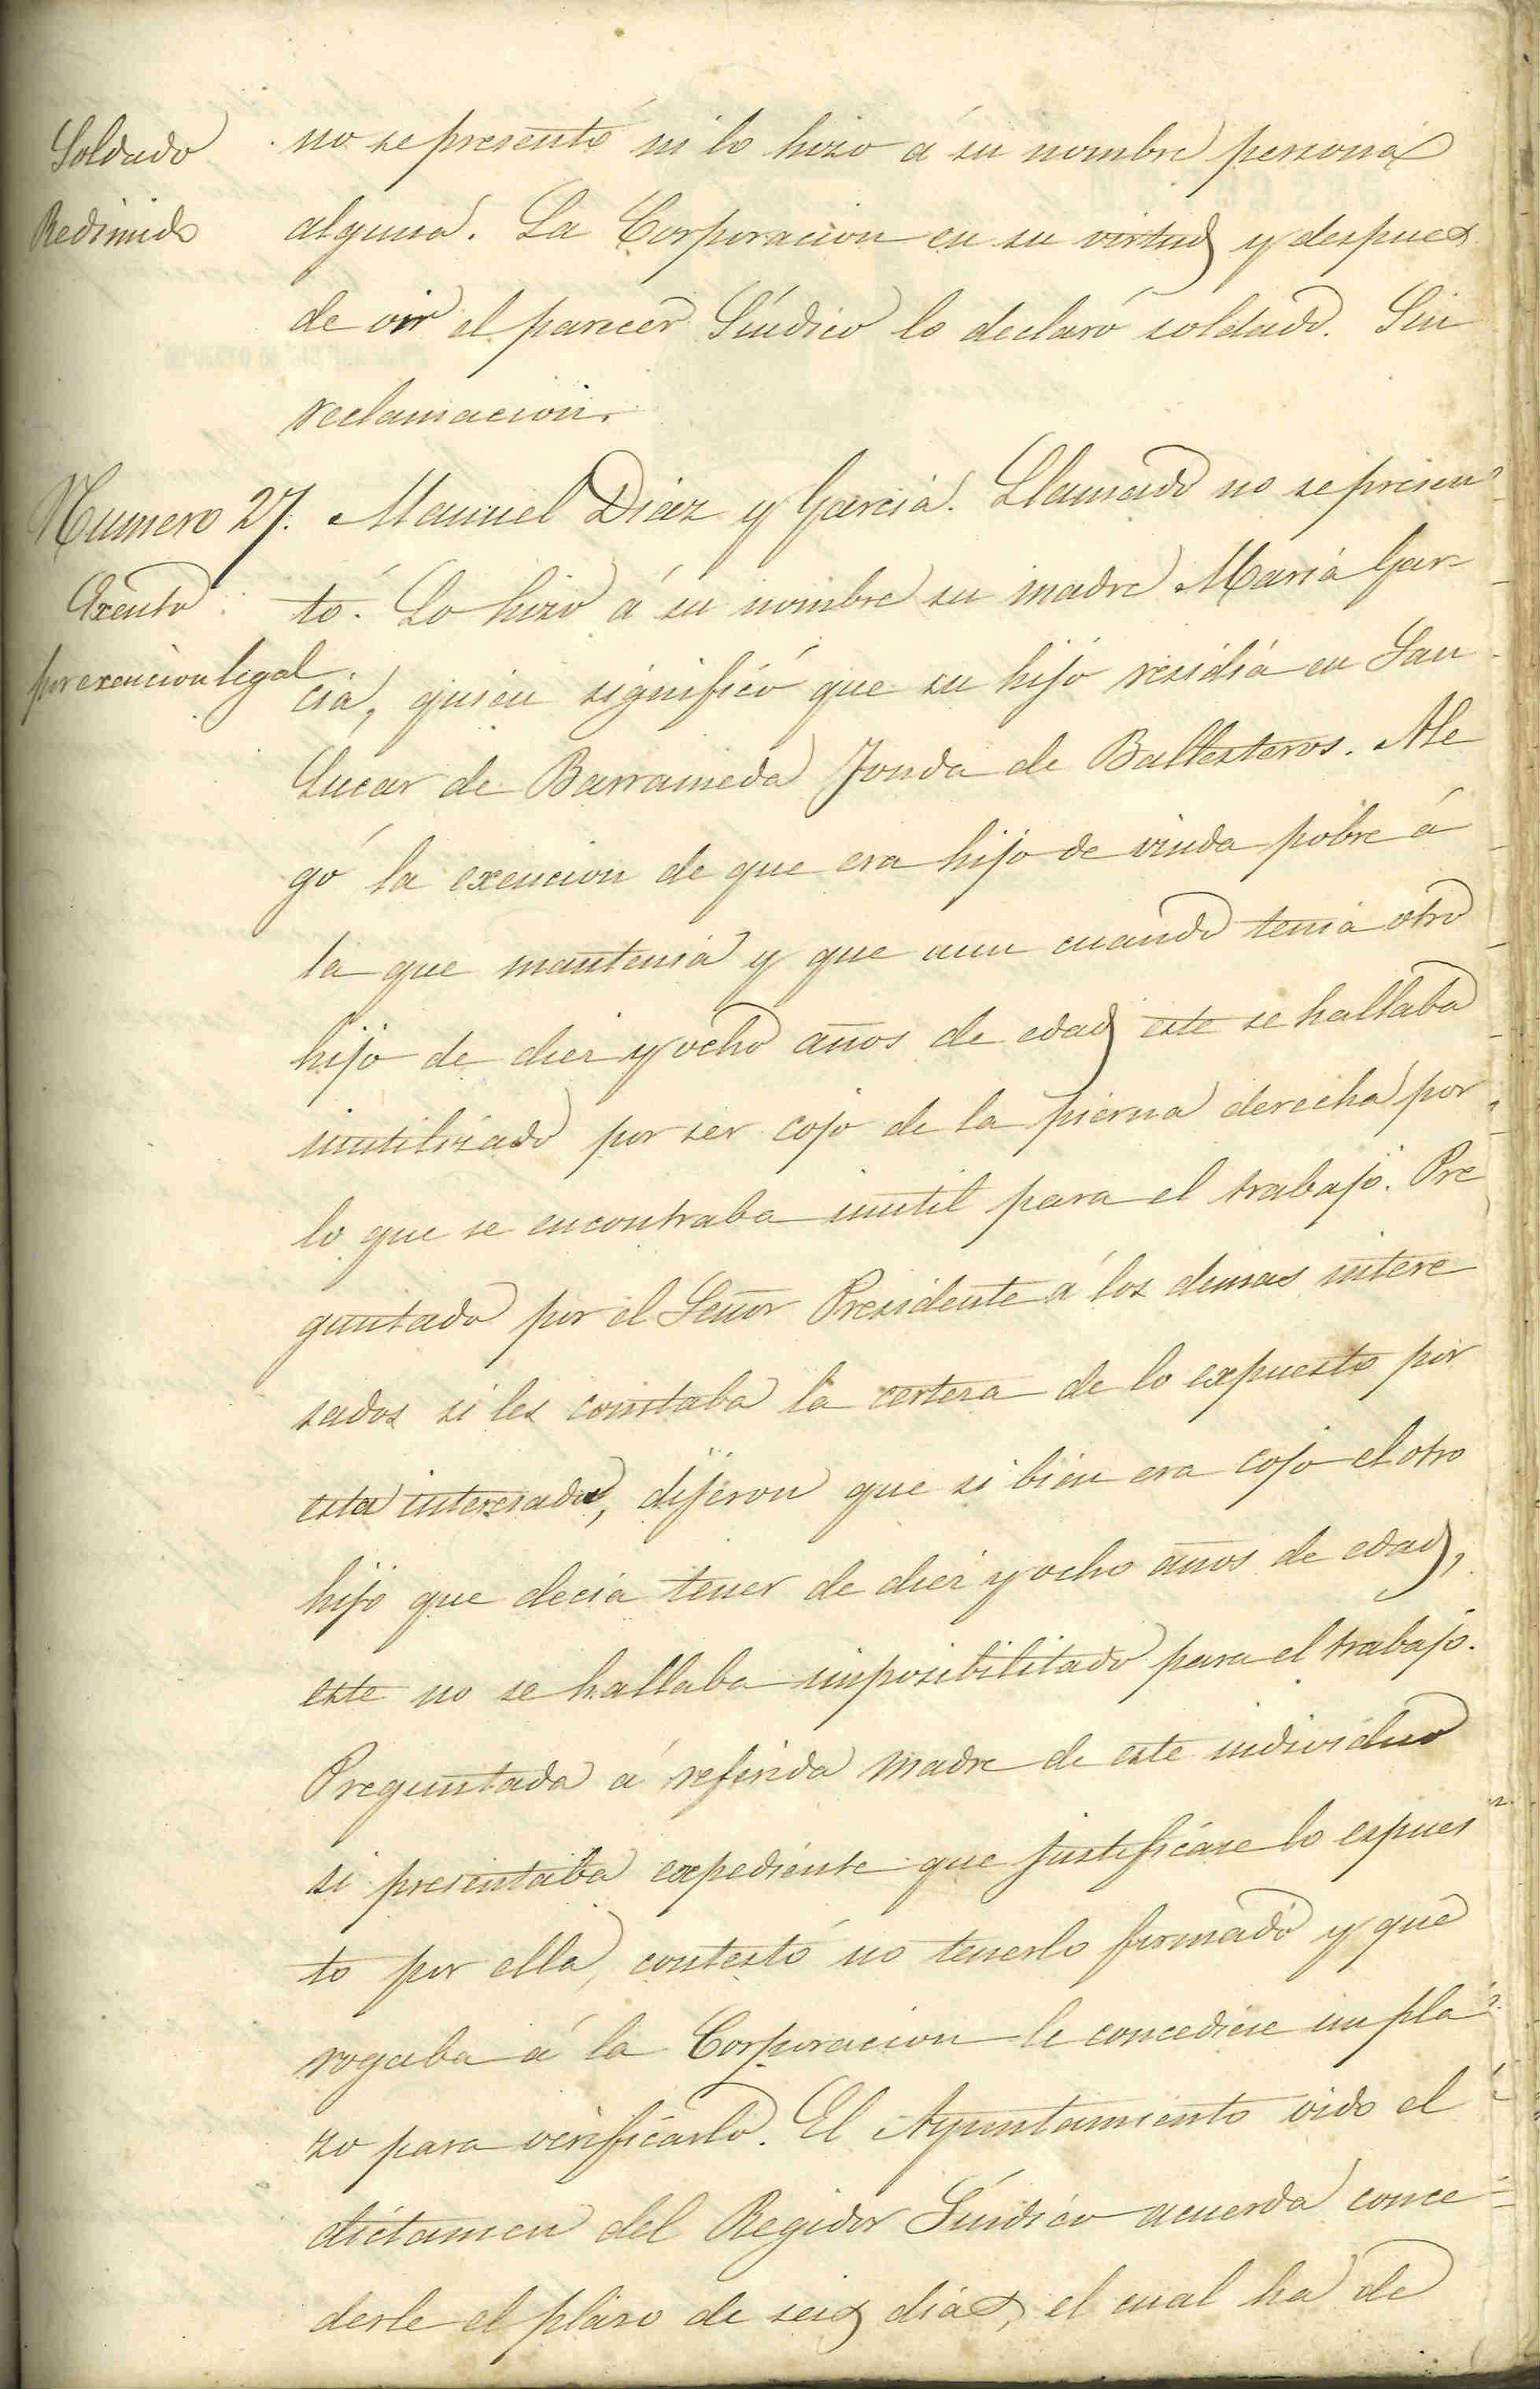 Soldado
Redimido
no se presentó ni lo hizo á su nombre persona
alguna. La Corporacion en su virtud y despues
de oir el parecer Síndico lo declaró soldado. Sin
reclamacion.
Numero 27. Manuel Diaz y Garcia. Llamado no se presen
Exento
por exencion legal.
tó. Lo hizo á su nombre su madre Maria Gar-
cia, quien significó que su hijo residia en San
Lucar de Barrameda Fonda de Ballesteros. Ale
gó la exencion de que era hijo de viuda pobre á
la que mantenia y que aun cuando tenia otro
hijo de diez y ocho años de edad este se hallaba
inutilizado por ser cojo de la pierna derecha por
lo que se encontraba inutil para el trabajo. Pre
guntado por el Señor Presidente á los demas intere
sados si les constaba la certeza de lo expuesto por
esta interesada, dijeron que si bien era cojo el otro
hijo que decia tener de diez y ocho años de edad,
este no se hallaba imposibilitado para el trabajo.
Preguntada á referida madre de este individuo
si presentaba expediente que justificase lo espues
to por ella, contestó no tenerlo formado y que
rogaba á la Corporacion le concediese un pla
zo para verificarlo. El Ayuntamiento oido el
dictamen del Regidor Síndico acuerda conce
derle el plazo de seis dias, el cual ha de